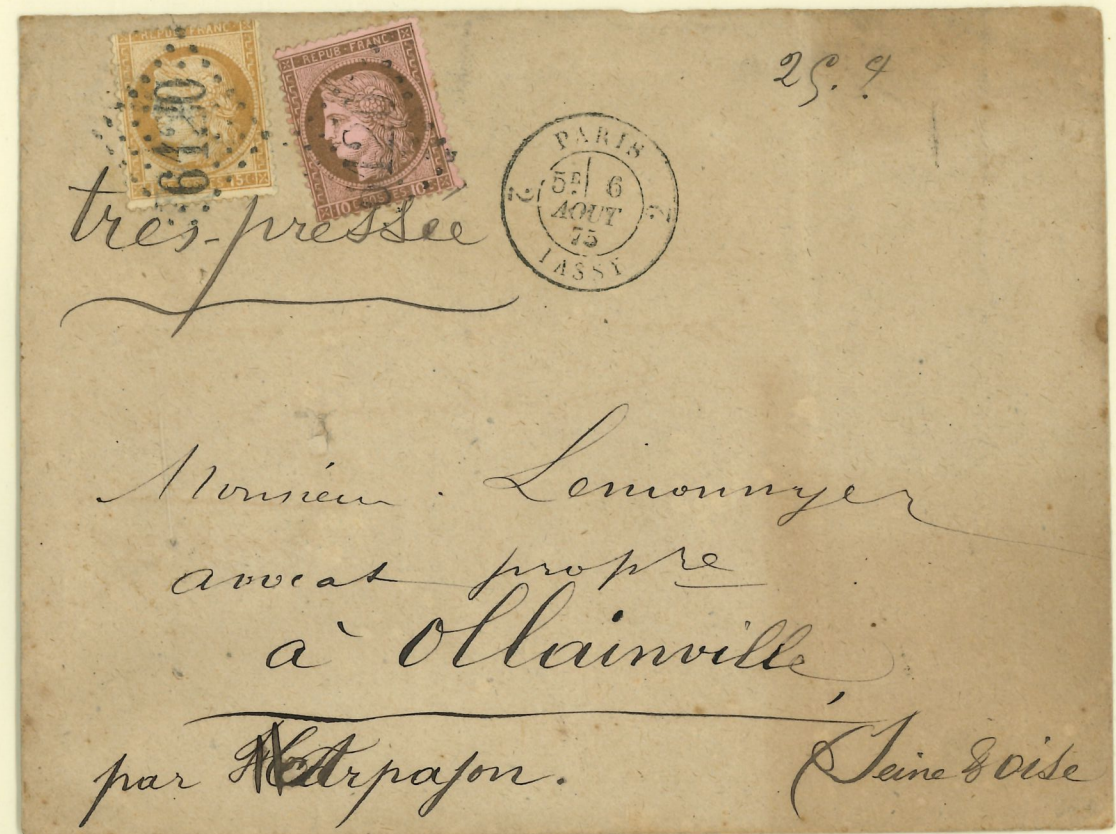 REPUB·FRANC·
REPUB·FRANC·
15
10 10
6120
25.
PARIS
5E 6
AOUT
75
PASSY
2 2
très-pressée
Monsieur Lemonnyer
avocat propre
à Ollainville,
par Arpajon.
(Seine & Oise